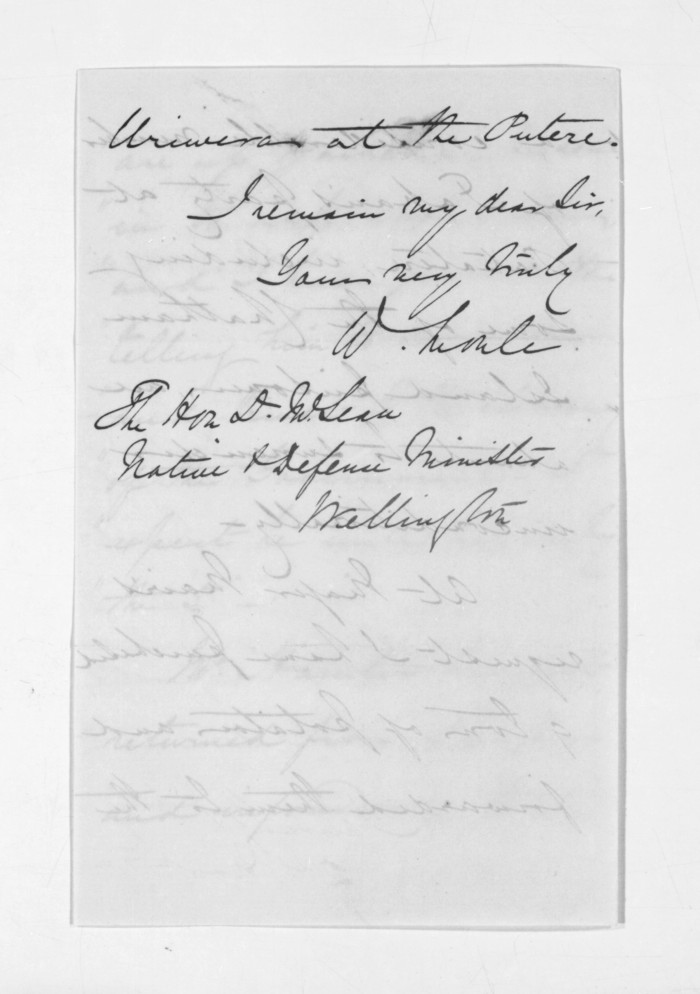 Uriweras at the Putere.
I remain my dear Sir,
Yours very truly
W.
The Hon D. McLean
Native & Defense Minister
Wellington